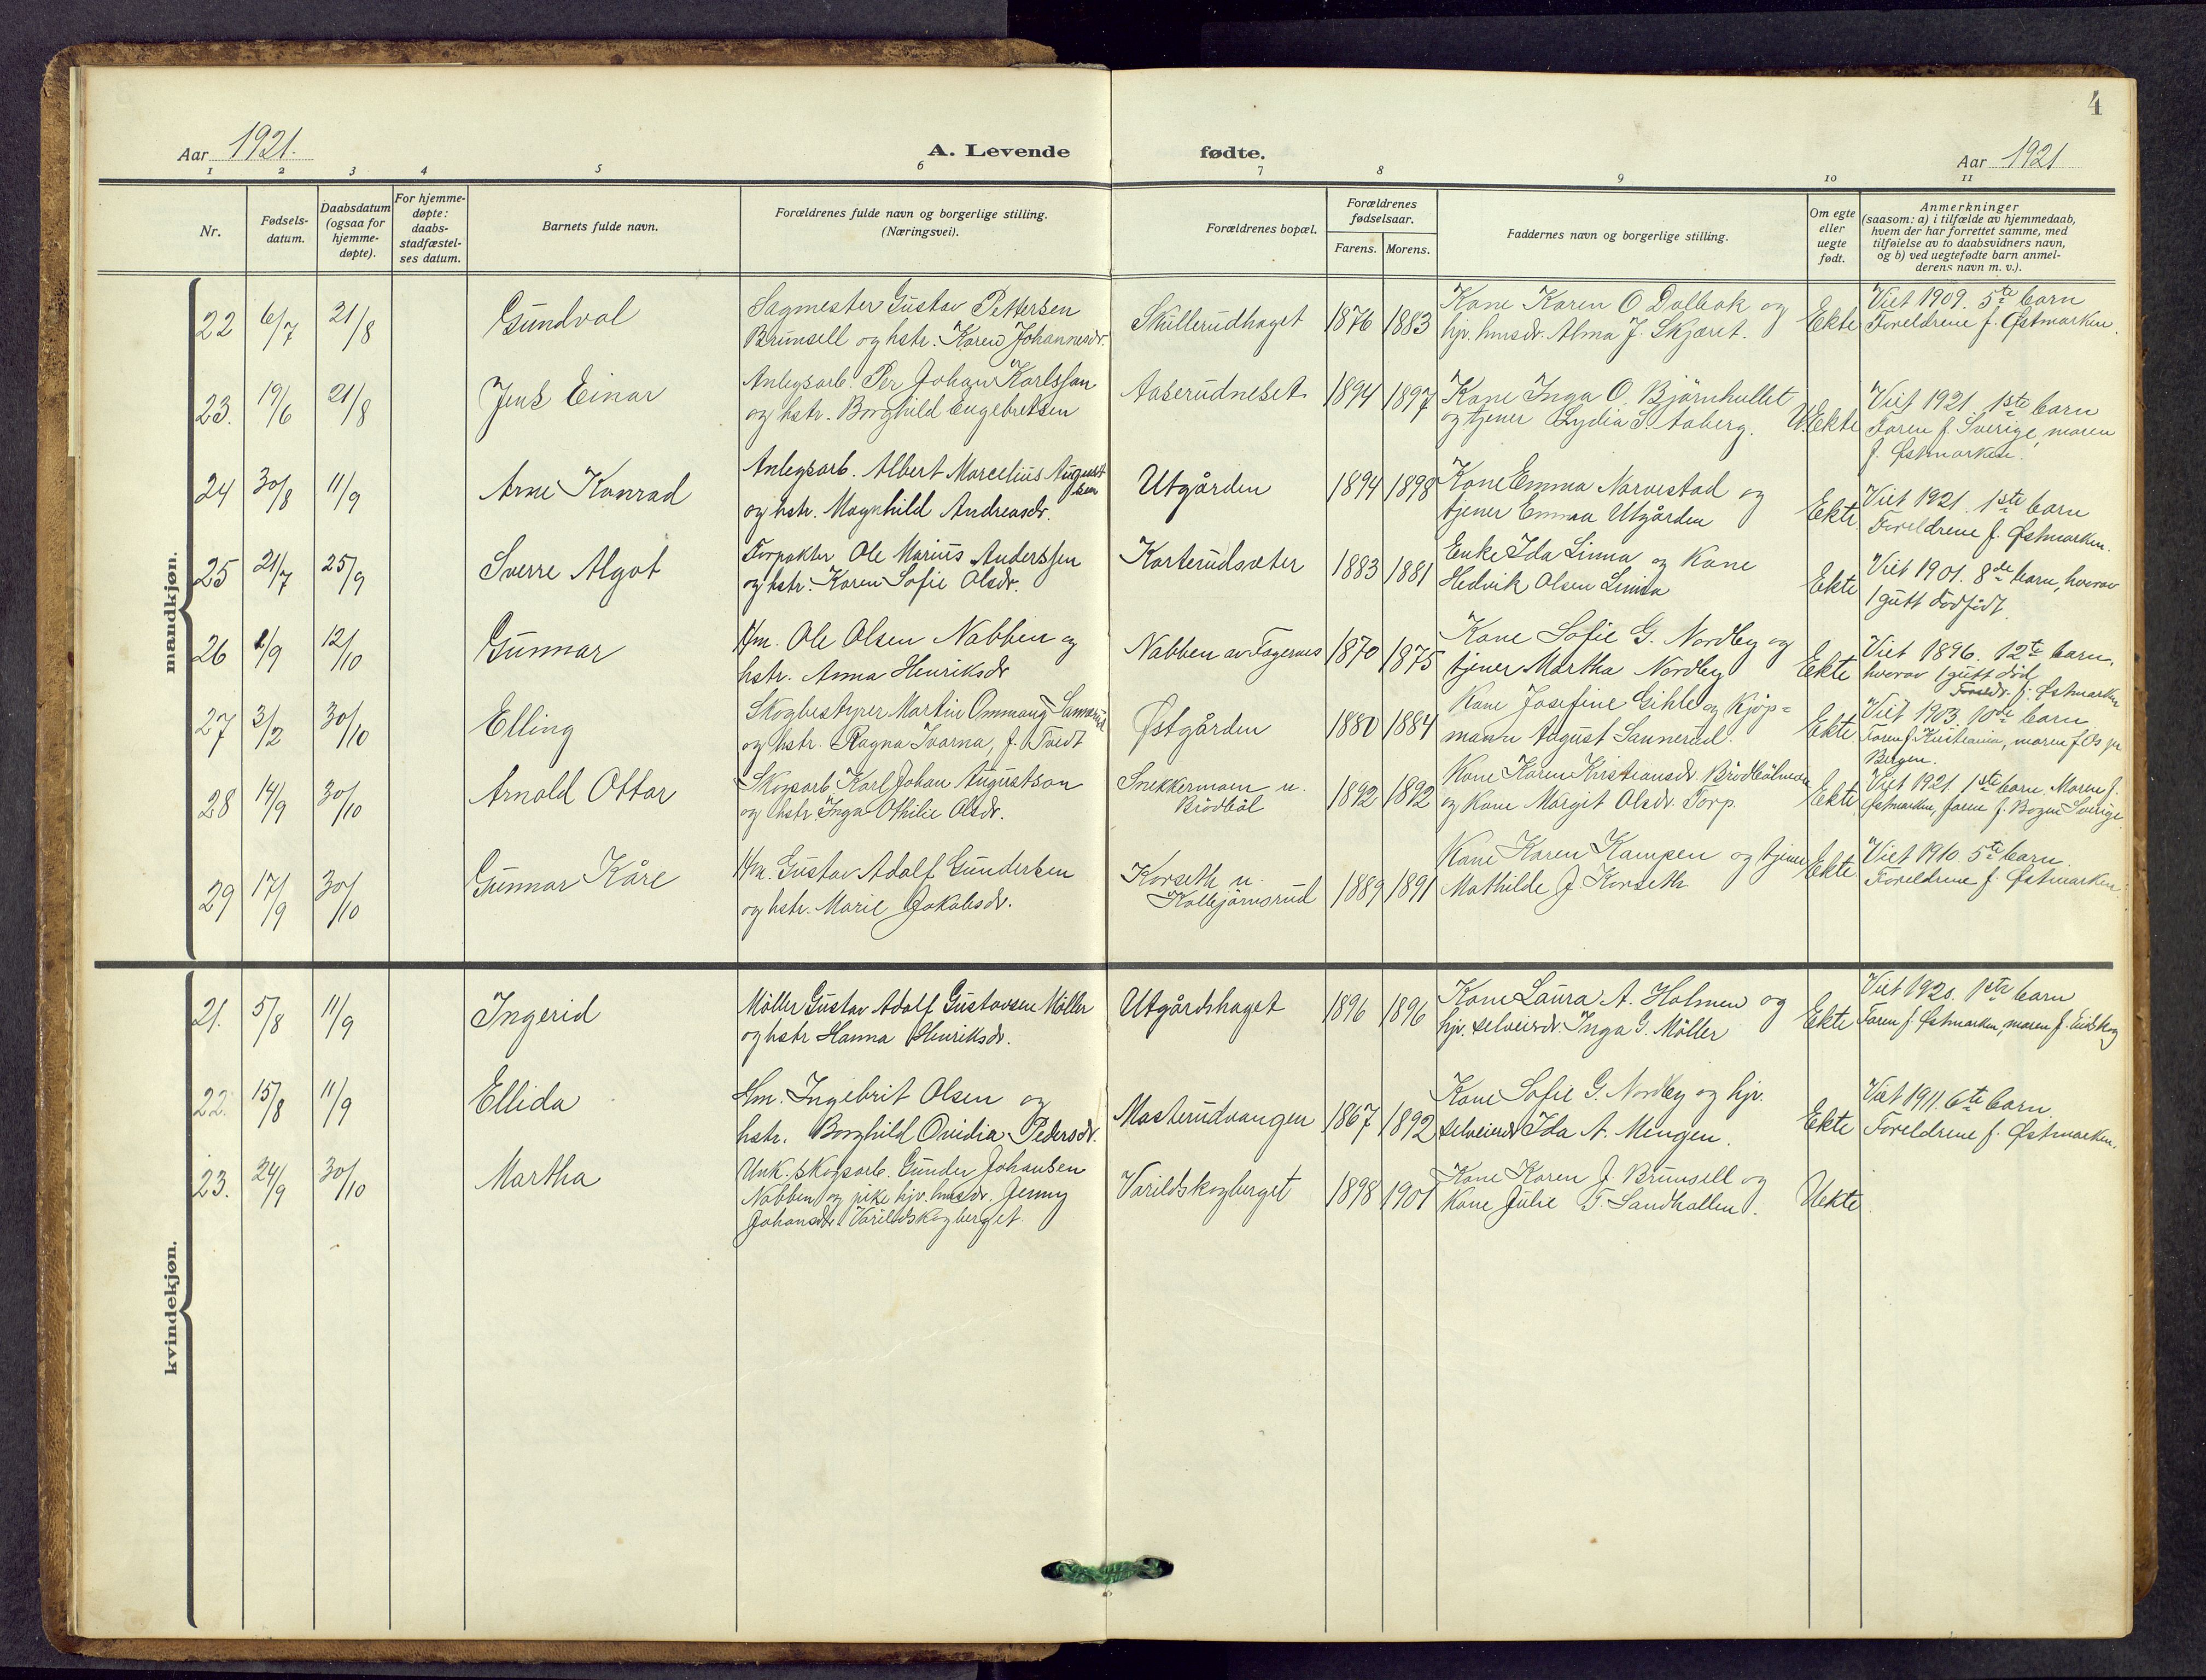 4
Aar 1921.
A. Levende fødte.
Aar 1921
1 2 3 4 5 6 7 8 9 10 11
Nr.
Fødsels-
datum.
Daabsdatum
(ogsaa for
hjemme-
døpte).
For hjemme-
døpte:
daabs-
stadfæstel-
ses datum.
Barnets fulde navn.
Forældrenes fulde navn og borgerlige stilling.
(Næringsvei).
Forældrenes bopæl.
Forældrenes
fødselsaar.
Farens. Morens.
Faddernes navn og borgerlige stilling.
Om egte
eller
uegte
født.
Anmerkninger
(saasom: a) i tilfælde av hjemmedaab,
hvem der har forrettet samme, med
tilføielse av to daabsvidners navn,
og b) ved uegtefødte barn anmel-
derens navn m. v.).
mandkjøn.
22 6/7 21/8 Gundval
Sagmester Gustav Pettersen
Brunsell og hstr. Karen Johannesdr.
Skullerudhaget 1876 1883
Kone Karen O Dalbak og
hjv. hmsdr. Alma J. Skjæret.
Ekte
Viet 1909. 5te barn
Foreldrene f. Østmarken.
23. 19/6 21/8 Jens Einar
Anlegsarb. Per Johan Karlsson
og hstr. Borghild Engebretsen
Aaserudneset 1894 1897
Kone Inga O. Bjørnhullet
og tjener Lydia S. Aaberg.
U.Ekte
Viet 1921. 1ste barn
Faren f. Sverige, moren
f. Østmarken.
24 30/8 11/9 Arne Konrad
Anlegsarb. Albert Marcelius August
sen
og hstr. Magnhild Andreasdr.
Utgården 1894 1898
Kone Emma Narvestad og
tjener Emma Utgården
Ekte
Viet 1921. 1ste barn
Foreldrene f. Østmarken.
25 21/7 25/9 Sverre Algot
Forpakter Ole Marius Anderssen
og hstr. Karen Sofie Olsdr.
Karterudsæter 1883 1881
Enke Ida Linna og Kone
Hedvik Olsen Linna
Ekte
Viet 1901. 8de barn, hvorav
1 gutt dødfødt.
26 2/9 12/10 Gunnar
Hm. Ole Olsen Nabben og
hstr. Anna Henriksdr
Nabben av Fagernes 1870 1875
Kone Sofie G. Nordby og
tjener Martha Nordby
Ekte
Viet 1896. 12te barn,
hvorav 1 gutt død.
Foreldr. f. Østmarken
27 3/2 30/10 Elling
Skogbestyrer Martin Ommang
og hstr. Ragna Ivarna, f. Tvedt
Østgården 1880 1884
Kone Josefine Gihle og Kjøp=
mann August Sannerud.
Ekte
Viet 1903. 10de barn
Faren f. Kristiania, moren f. Os pr
Bergen.
28 14/9 30/10 Arnold Ottar
Skogsarb Karl Johan Augustson
og hstr. Inga Othilie Olsdr.
Snekkermoen u.
Brødbøl
1892 1892
Kone Karen Kristiansdr. Brødbølmoen
og Kone Margit Olsdr. Torp.
Ekte
Viet 1921 1ste barn. Moren f.
Østmarken, faren f. Bogen Sverige.
29 17/9 30/10 Gunnar Kåre
Hm. Gustav Adolf Gundersen
og hstr. Marie Jakobsdr.
Korseth u.
Kolbjørnsrud
1889 1891
Kone Karen Kampen og tjener
Mathilde J. Korseth
Ekte
Viet 1910. 5te barn.
Foreldrene f. Østmarken.
kvindekjøn.
21. 5/8 11/9 Ingerid
Møller Gustav Adolf Gustavsen Møller
og hstr Hanna Henriksdr.
Utgårdshaget 1896 1896
Kone Laura A. Holmen og
hjv. selveierdr. Inga G. Møller
Ekte
Viet 1920. 1ste barn
Faren f. Østmarken, moren f. Eidskog
22. 15/8 11/9 Ellida
Hm. Ingebrit Olsen og
hstr. Borghild Ovidia Pedersdr.
Masterudvangen 1867 1892
Kone Sofie G. Nordby og hjv.
selveierdr Ida A. Mengen.
Ekte
Viet 1911. 6te barn.
Foreldrene f. Østmarken.
23. 24/9 30/10 Martha
Unk. skogsarb. Gunder Johansen
Nabben og pike hjv. hmsdr. Jenny
Johansdr. Varildskogberget.
Varildskogberget 1898 1901
Kone Karen J. Brunsell og
Kone Julie T. Sandhallen.
Uekte